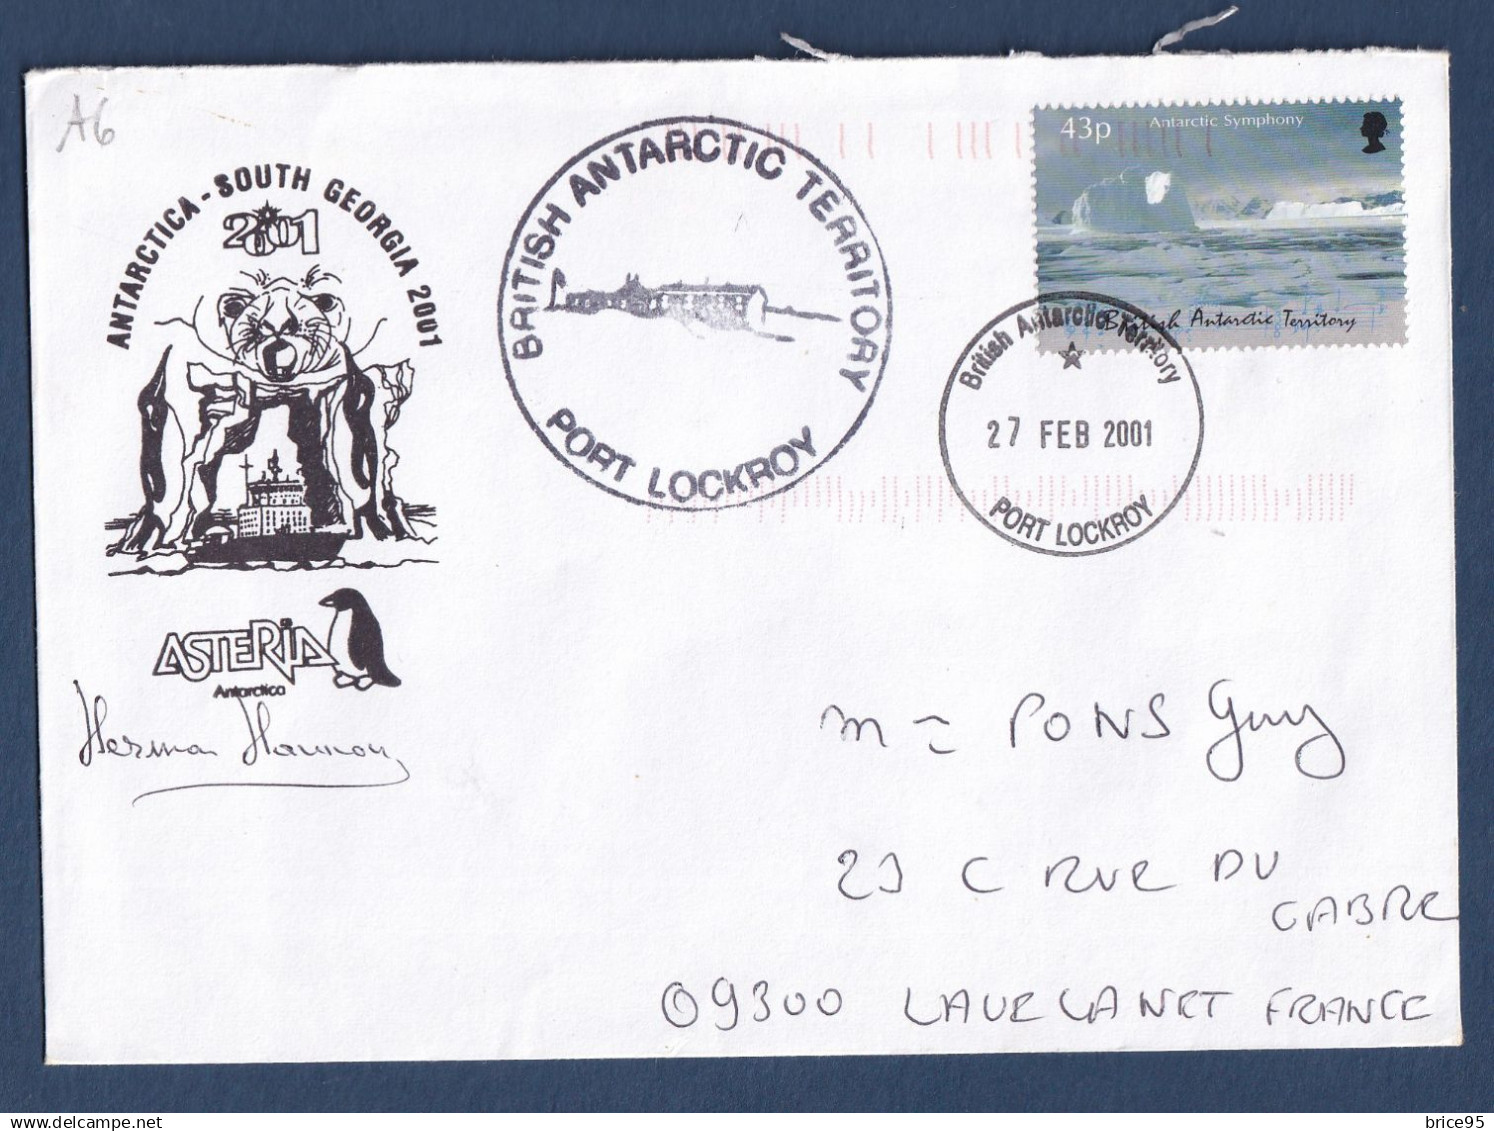 A6
ANTARCTICA - SOUTH GEORGIA 2001
2001
ASTERIA
Antarctica
BRITISH ANTARCTIC TERRITORY
PORT LOCKROY
43p Antarctic Symphony
British Antarctic Territory
British Antarctic Territory
27 FEB 2001
PORT LOCKROY
PONS Guy
C RUE DU
CABRE
09300 LAVELANET FRANCE
brice95